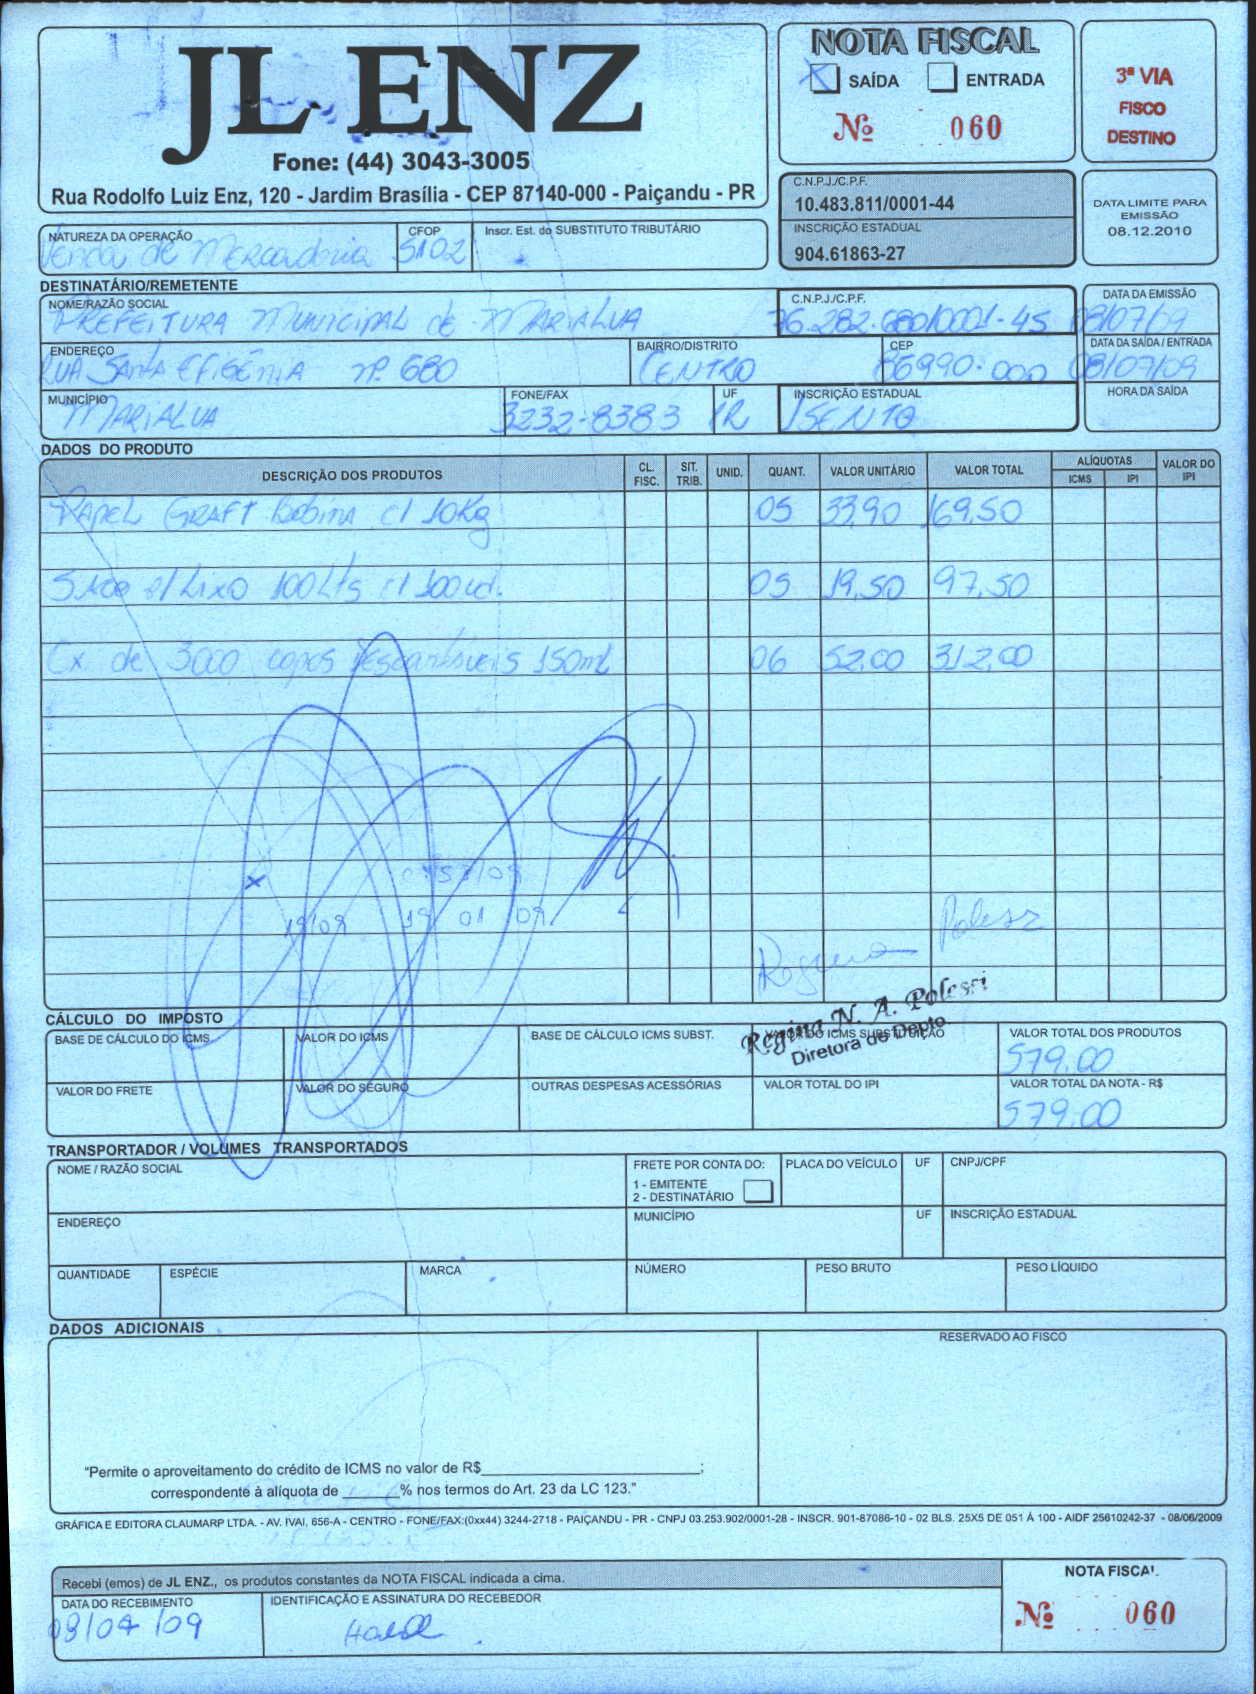 JL ENZ
Fone: (44) 3043-3005
Rua Rodolfo Luiz Enz, 120 - Jardim Brasília - CEP 87140-000 - Paiçandu - PR
NOTA FISCAL
X SAÍDA ENTRADA
Nº 060
3ª VIA
FISCO
DESTINO
C.N.P.J./C.P.F.
10.483.811/0001-44
INSCRIÇÃO ESTADUAL
904.61863-27
DATA LIMITE PARA
EMISSÃO
08.12.2010
NATUREZA DA OPERAÇÃO CFOP Inscr. Est. do SUBSTITUTO TRIBUTÁRIO
Venda de Mercadoria 5102
DESTINATÁRIO/REMETENTE
NOME/RAZÃO SOCIAL C.N.P.J./C.P.F. DATA DA EMISSÃO
PREFEITURA MUNICIPAL de MARIALVA 76.282.680/0001-45 08/07/09
ENDEREÇO BAIRRO/DISTRITO CEP DATA DA SAÍDA / ENTRADA
RUA SANTA EFIGÊNIA nº 680 CENTRO 86990-000 08/07/09
MUNICÍPIO FONE/FAX UF INSCRIÇÃO ESTADUAL HORA DA SAÍDA
MARIALVA 3232-8383 PR ISENTO
DADOS DO PRODUTO
DESCRIÇÃO DOS PRODUTOS CL. FISC. SIT. TRIB. UNID. QUANT. VALOR UNITÁRIO VALOR TOTAL ALÍQUOTAS ICMS IPI VALOR DO IPI
PAPEL GRAFT Bobina c/ 10Kg 05 33,90 169,50
SACO p/ Lixo 100Lts c/ 100ud. 05 19,50 97,50
Cx. de 3000 copos descartáveis 150ml 06 52,00 312,00
19/09 19 01 09
Regina Polessi
Regina N. A. Polessi
Diretora de Depto
CÁLCULO DO IMPOSTO
BASE DE CÁLCULO DO ICMS VALOR DO ICMS BASE DE CÁLCULO ICMS SUBST. VALOR DO ICMS SUBSTITUIÇÃO VALOR TOTAL DOS PRODUTOS
579,00
VALOR DO FRETE VALOR DO SEGURO OUTRAS DESPESAS ACESSÓRIAS VALOR TOTAL DO IPI VALOR TOTAL DA NOTA - R$
579,00
TRANSPORTADOR / VOLUMES TRANSPORTADOS
NOME / RAZÃO SOCIAL FRETE POR CONTA DO: PLACA DO VEÍCULO UF CNPJ/CPF
1 - EMITENTE
2 - DESTINATÁRIO
ENDEREÇO MUNICÍPIO UF INSCRIÇÃO ESTADUAL
QUANTIDADE ESPÉCIE MARCA NÚMERO PESO BRUTO PESO LÍQUIDO
DADOS ADICIONAIS
RESERVADO AO FISCO
“Permite o aproveitamento do crédito de ICMS no valor de R$____________________________;
correspondente à alíquota de _______% nos termos do Art. 23 da LC 123.”
GRÁFICA E EDITORA CLAUMARP LTDA. - AV. IVAI, 656-A - CENTRO - FONE/FAX:(0xx44) 3244-2718 - PAIÇANDU - PR - CNPJ 03.253.902/0001-28 - INSCR. 901-87086-10 - 02 BLS. 25X5 DE 051 À 100 - AIDF 25610242-37 - 08/06/2009
Recebi (emos) de JL ENZ., os produtos constantes da NOTA FISCAL indicada a cima.
DATA DO RECEBIMENTO IDENTIFICAÇÃO E ASSINATURA DO RECEBEDOR
08/07/09
NOTA FISCAL
Nº 060